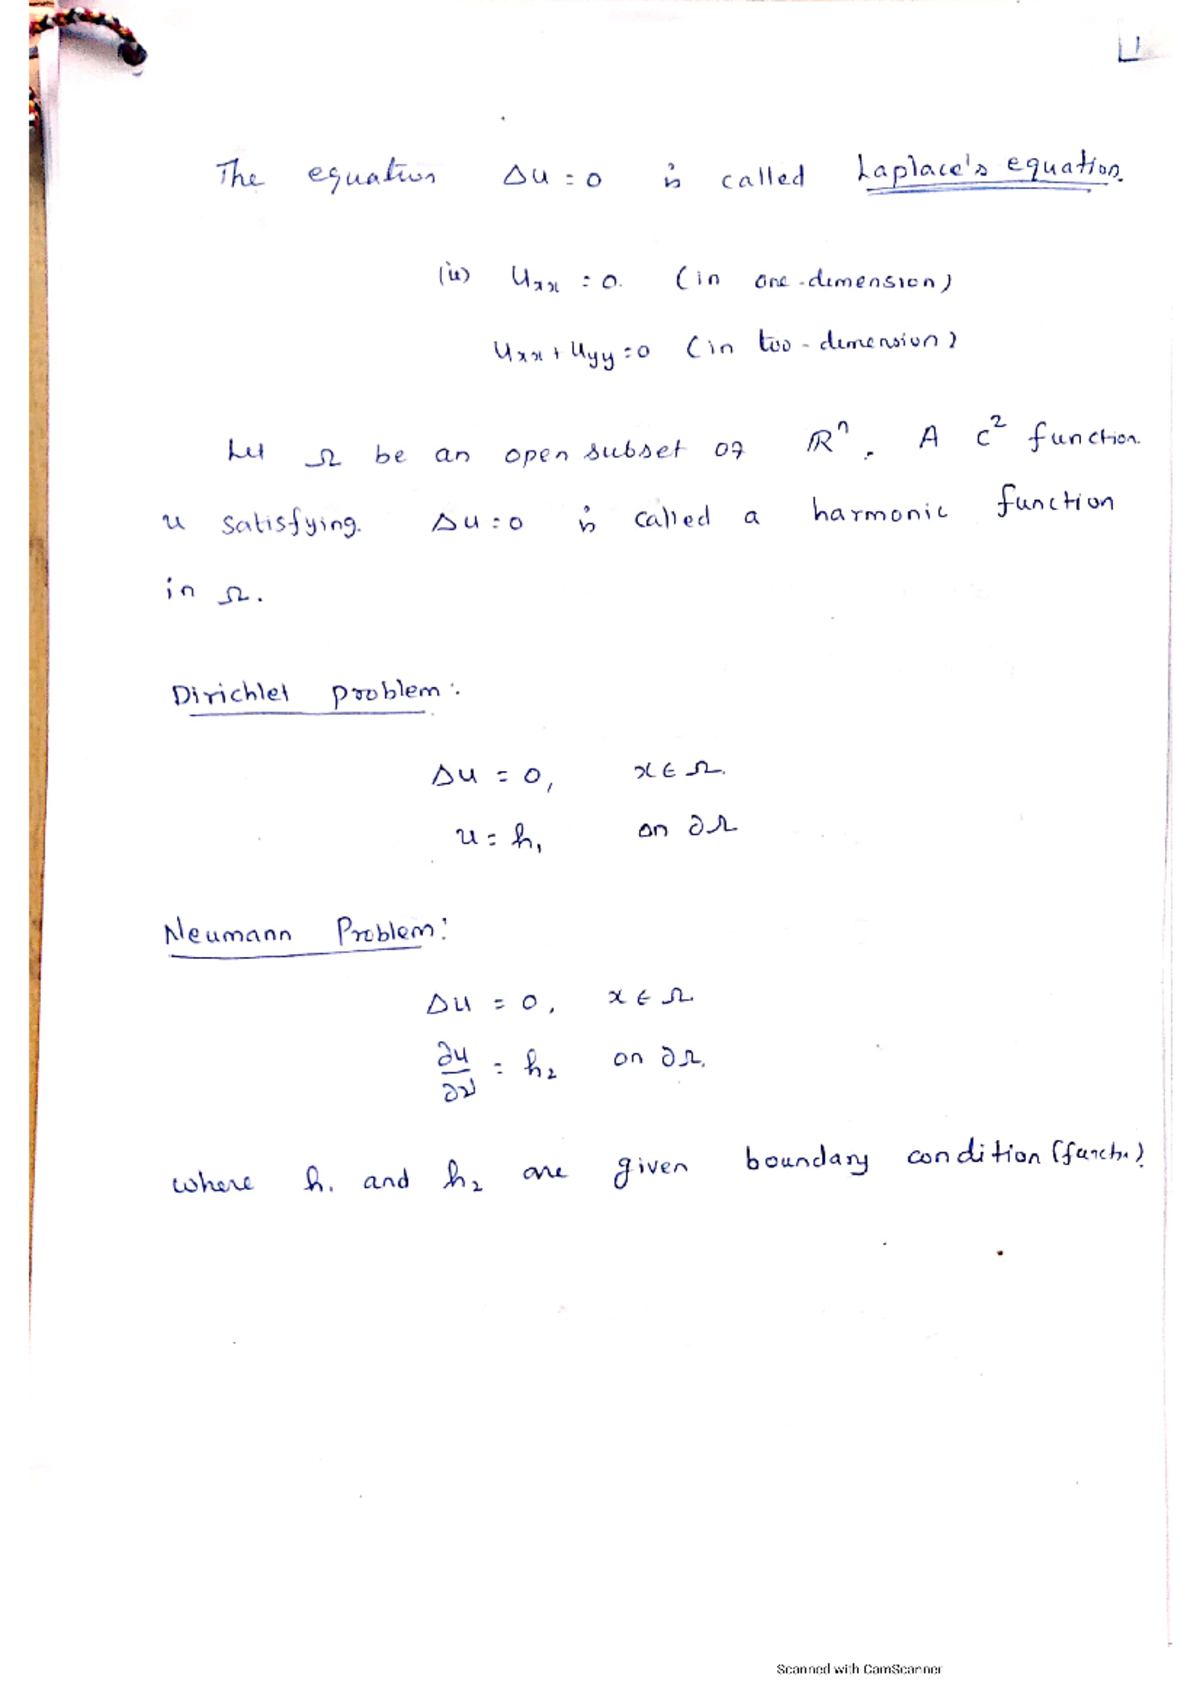 The equation Δu = 0 is called Laplace's equation.
(ie) uxx = 0. (in one-dimension)
uxx + uyy = 0 (in two-dimension)
Let Ω be an open subset of ℝⁿ. A C² function
u satisfying. Δu = 0 is called a harmonic function
in Ω.
Dirichlet problem:
Δu = 0, x ∈ Ω.
u = h₁ on ∂Ω
Neumann Problem:
Δu = 0, x ∈ Ω
∂u/∂ν = h₂ on ∂Ω.
where h₁ and h₂ are given boundary condition
Scanned with CamScanner